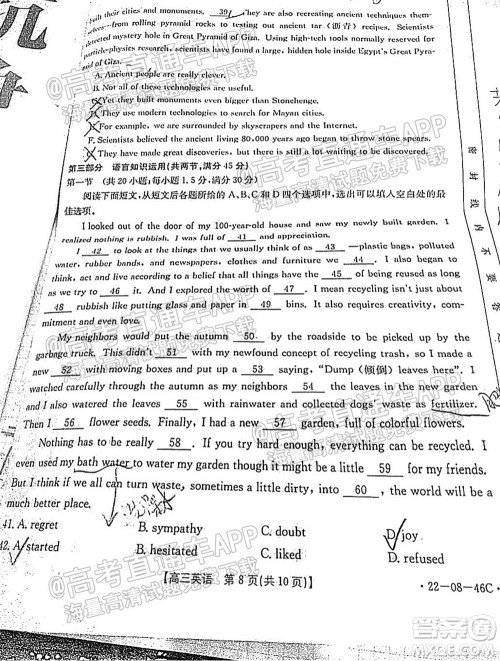 built their cities and monuments. 39 They are also recreating ancient techniques them-
selves—from rolling pyramid rocks to testing out ancient tar (沥青) recipes. Scientists
detected mystery hole in Great Pyramid of Giza. Using high-tech tools normally reserved for
particle-physics research, scientists have found a large, hidden hole inside Egypt's Great Pyra-
mid of Giza.
A. Ancient people are really clever.
B. Not all of these technologies are useful.
C. Yet they built monuments even bigger than Stonehenge.
D. They use modern technologies to search for Mayan cities.
E. For example, we are surrounded by skyscrapers and the Internet.
F. Scientists believed the ancient living 80,000 years ago began to throw stone spears.
G. They have made great discoveries, but there is still a lot waiting to be discovered.
第三部分 语言知识运用(共两节,满分 45 分)
第一节 (共 20 小题;每小题 1.5 分,满分 30 分)
阅读下面短文,从短文后各题所给的A、B、C和D四个选项中,选出可以填入空白处的最
佳选项。
I looked out of the door of my 100-year-old house and saw my newly built garden. I
realized nothing is rubbish. I was full of 41 and appreciation.
I 42 to look at the things that we usually dismiss as 43 —plastic bags, polluted
water, rubber bands, and newspapers, clothes and furniture we 44 . I also began to
think, act and live according to a belief that all things are 45 of being reused as long
as we try to 46 it. And I explored the worth of 47 . But recycling isn't just about
48 rubbish like putting glass and paper in 49 bins. It also requires creativity, com-
mitment and even love.
My neighbors would put the autumn 50 by the roadside to be picked up by the
garbage truck. This didn't 51 with my newfound concept of recycling trash, so I made a
new 52 with moving boxes and put up a 53 saying, "Dump (倾倒) leaves here". I
watched carefully through the autumn as my neighbors 54 the leaves in the new garden
and I also watered the leaves 55 with rainwater and collected dogs' waste as fertilizer.
Then I 56 flower seeds. Finally, I had a new 57 garden, full of colorful flowers.
Nothing has to be really 58 . If you try hard enough, everything can be recycled. I
even used my bath water to water my garden though it might be a little 59 for my friends.
But I think if we all can turn waste, sometimes a little dirty, into 60 , the world will be a
much better place.
41. A. regret B. sympathy C. doubt D. joy
42. A. started B. hesitated C. liked D. refused
【高三英语 第 8 页(共 10 页)】
·22-08-46C·
密 封 线 内 不 要 答
高考直通车APP
海量高清试题免费下载
高考直通车APP
海量高清试题免费下载
高考直通车APP
海量高清试题免费下载